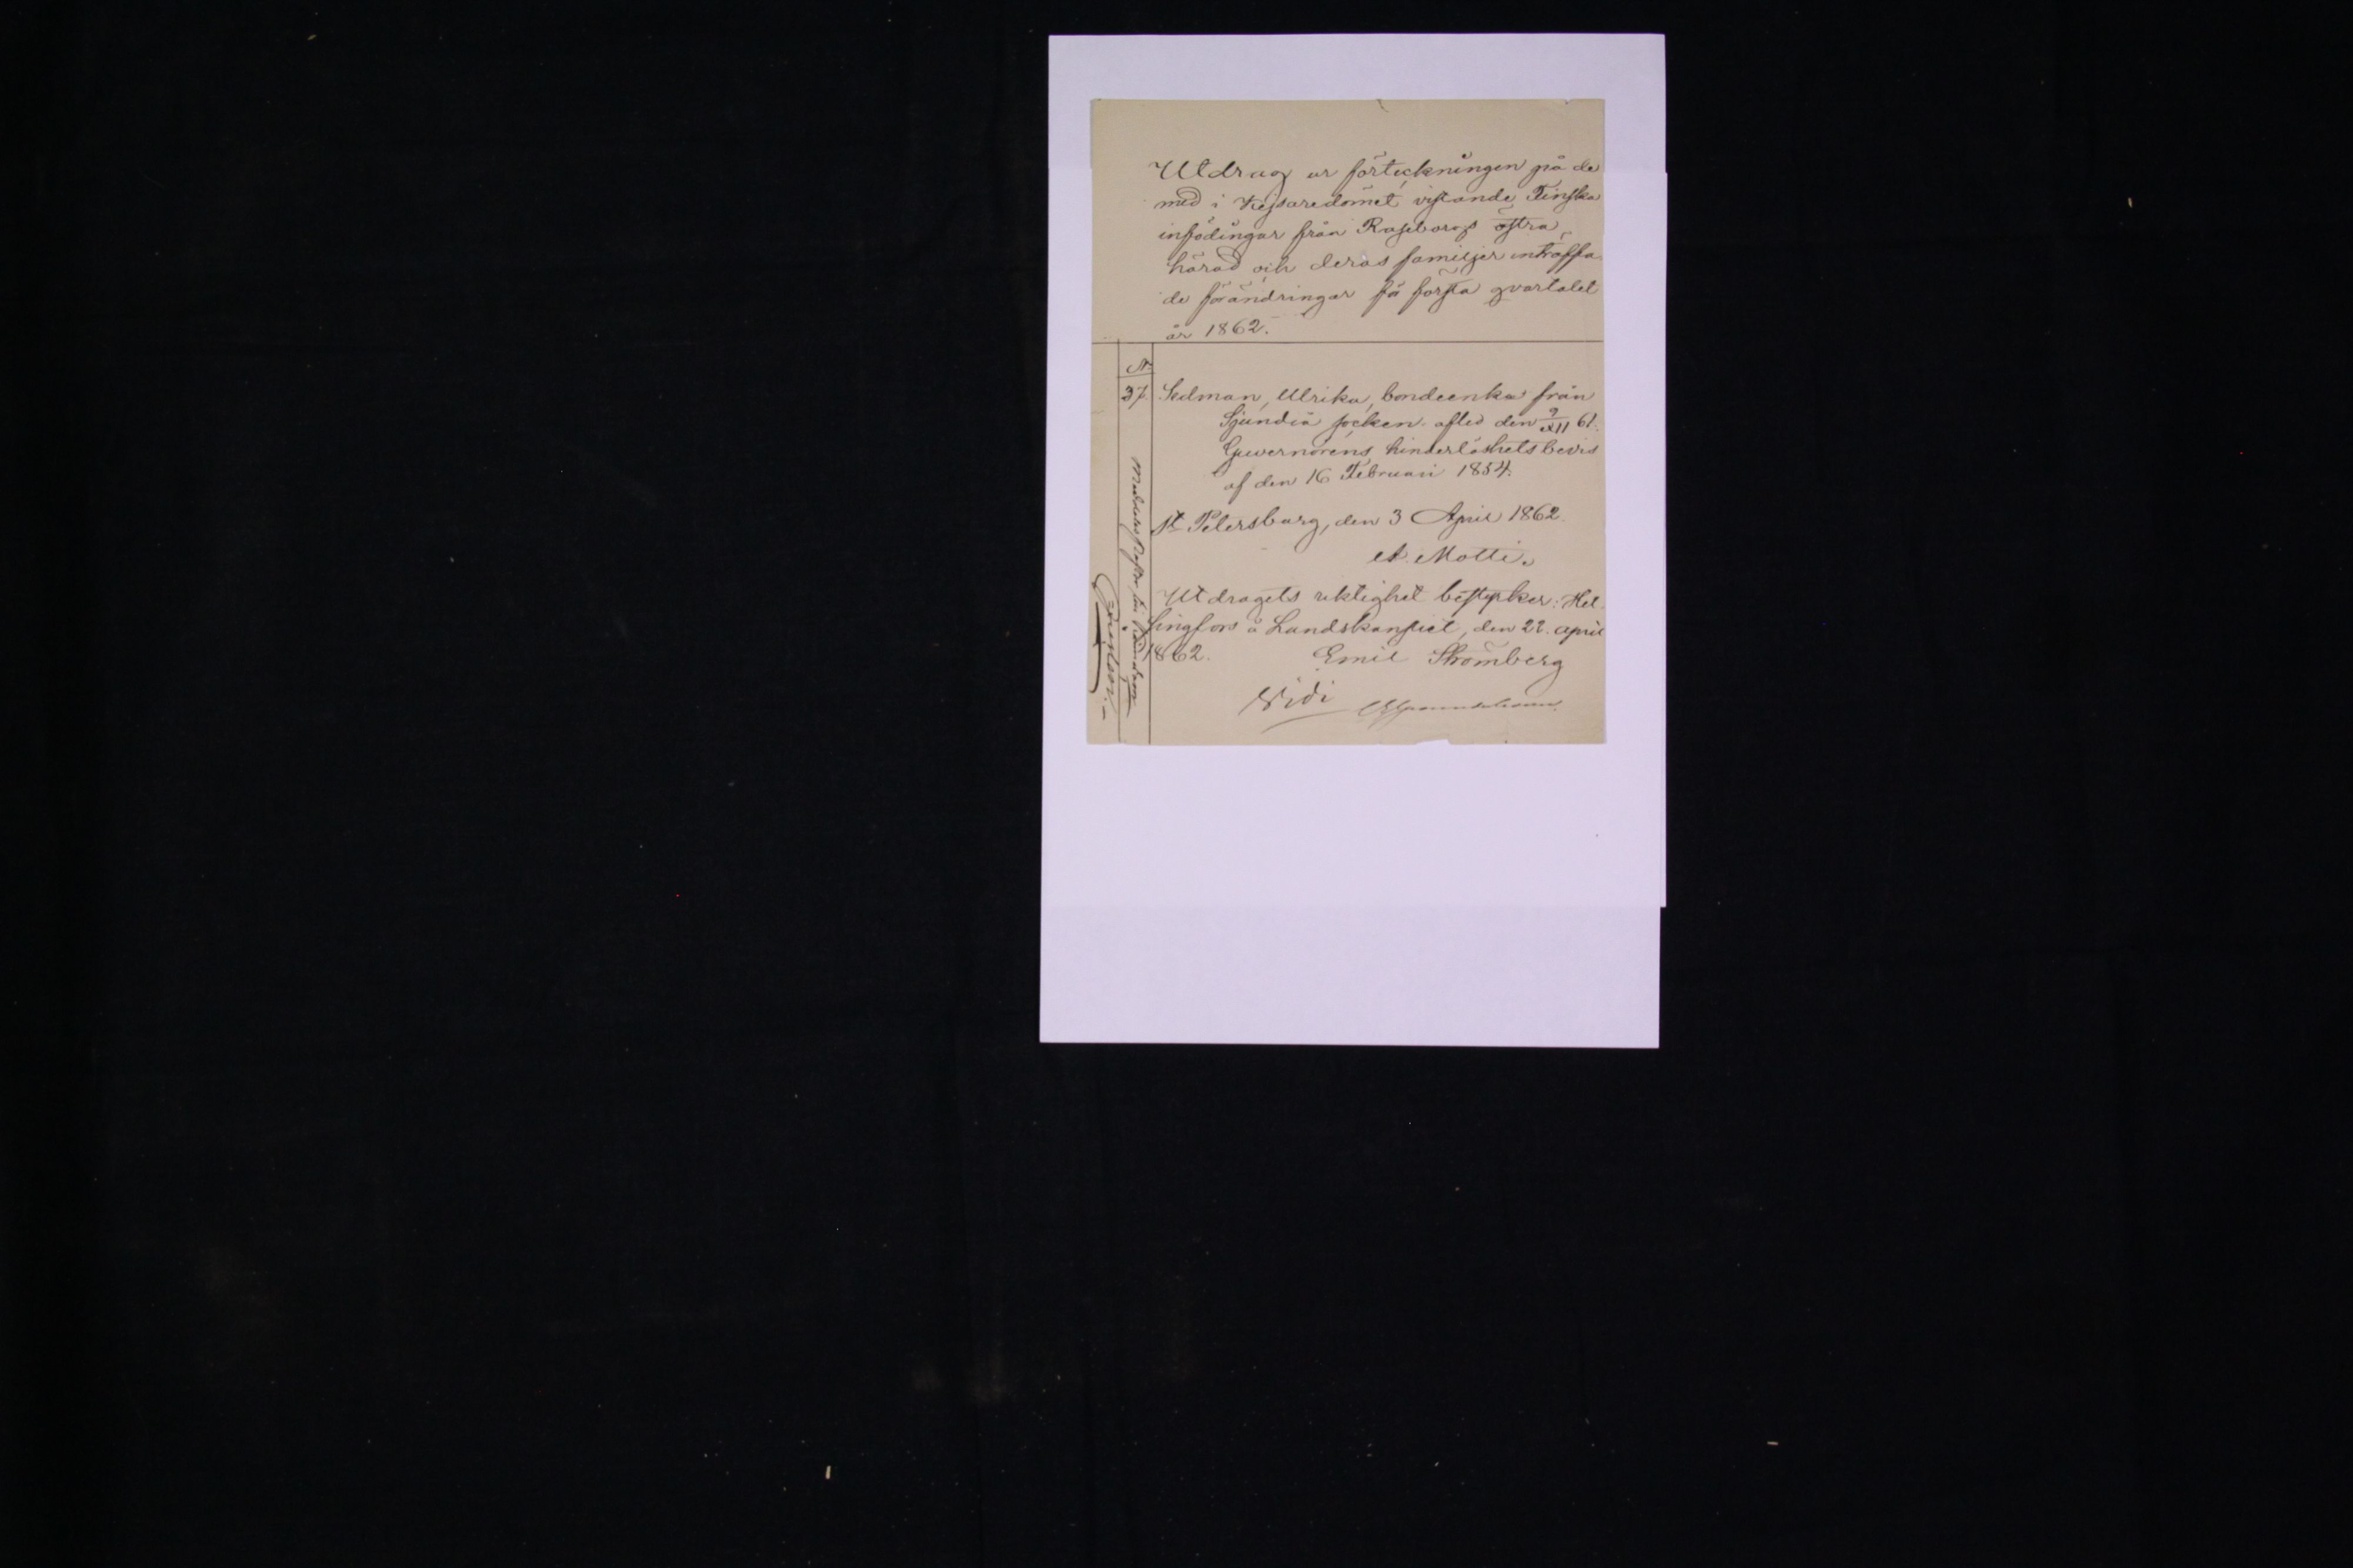 Utdrag ur förteckningen på de
med i Kejsaredömet vistande Finska
infödingar från Raseborgs östra
härad och deras familjer inträffa-
de förändringar på första qvartalet
år 1862.
No
37. Sedman, Ulrika, bondeenka från
Sjundeå socken afled den 9/XII 61.
Guvernörens hinderlöshetsbevis
af den 16 Februari 1854.
St Petersburg, den 3 April 1862.
A. Motti.
Utdragets riktighet bestyrker: Hel-
singfors å Landskansliet, den 22. april
1862. Emil Strömberg
Vidi